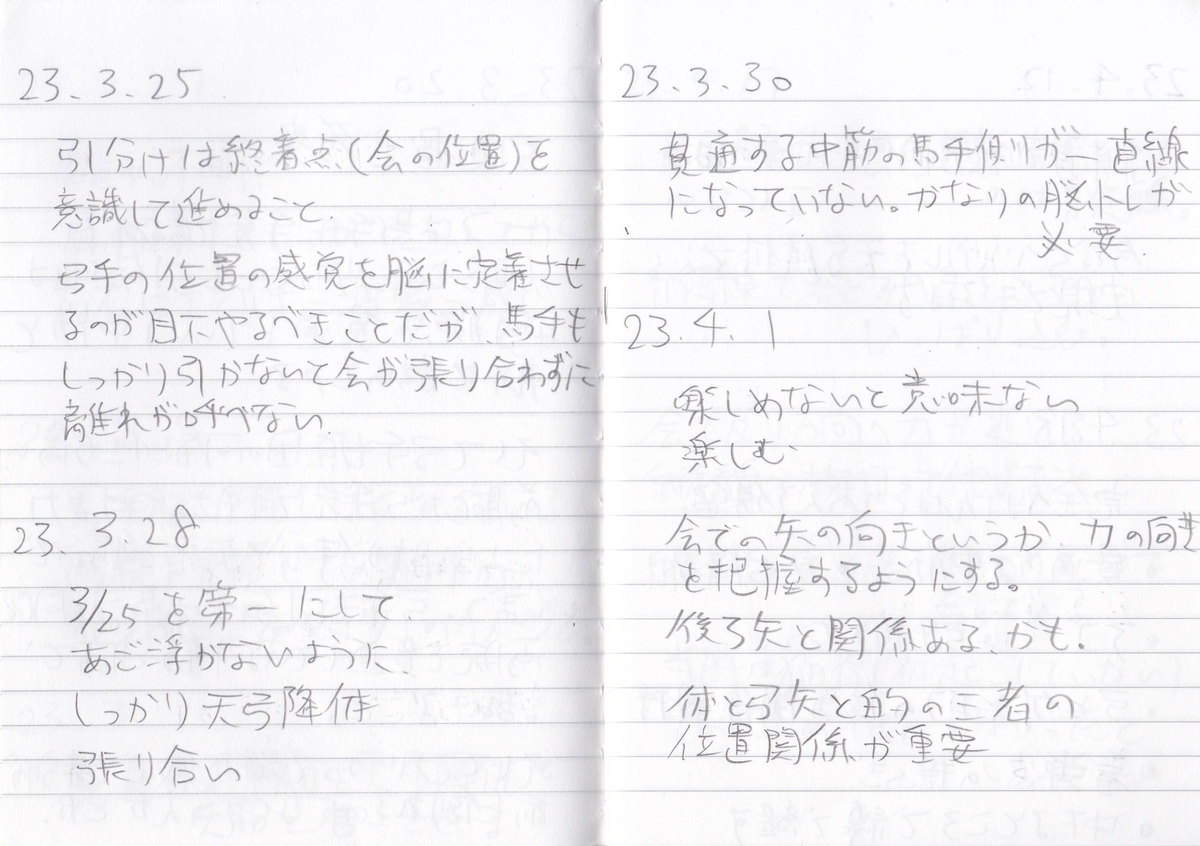 23.3.25
引分けは終着点(会の位置)を
意識して進めること.
弓手の位置の感覚を脳に定着させ
るのが目下やるべきことだが、馬手も
しっかり引かないと会が張り合わずに
離れが呼べない.
23.3.28
3/25を第一にして、
あご浮かないように、
しっかり天弓降体
張り合い
23.3.30
見通する中筋の馬手側が一直線
になっていない。かなりの脳トレが
必要.
23.4.1
楽しめないと意味ない
楽しむ
会での矢の向きというか、力の向き
を把握するようにする。
後ろ矢と関係ある、かも.
体と弓矢と的の三者の
位置関係が重要